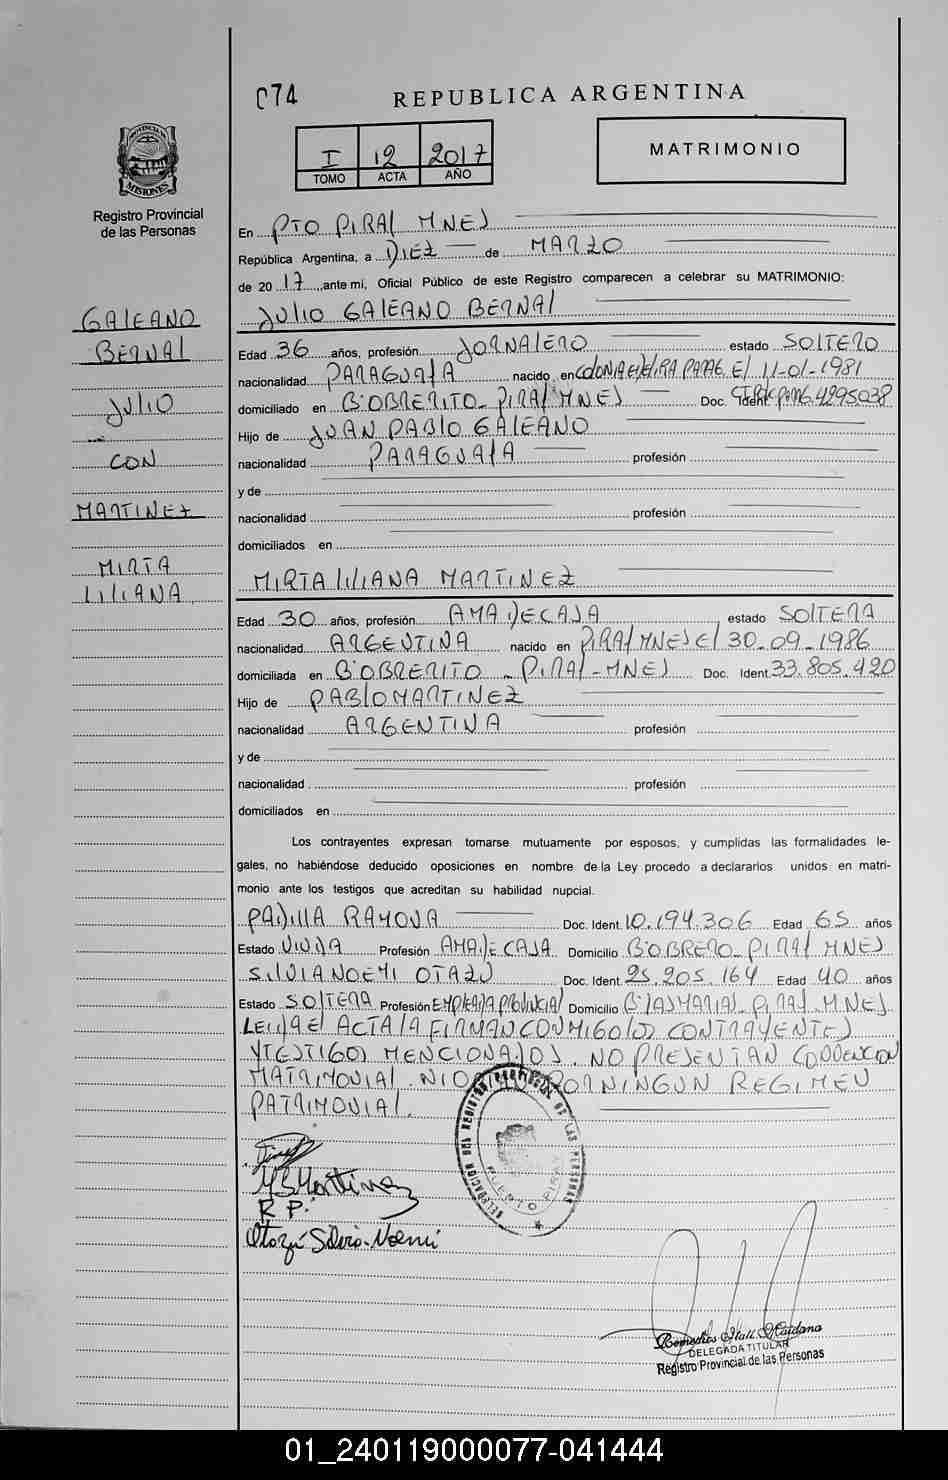 074
REPUBLICA ARGENTINA
I 12 2017
TOMO ACTA AÑO
MATRIMONIO
PROVINCIA DE
MISIONES
Registro Provincial
de las Personas
GALEANO
BERNAL
JULIO
CON
MARTINEZ
MIRTA
LILIANA
En PTO PIRAY MNES
República Argentina, a DIEZ de MARZO
de 20 17 ,ante mí, Oficial Público de este Registro comparecen a celebrar su MATRIMONIO:
JULIO GALEANO BERNAL
Edad 36 años, profesión JORNALERO estado SOLTERO
nacionalidad PARAGUAYA nacido en COLONIA PARAG. El 11-01-1981
domiciliado en B°OBRERITO-PIRAY MNES Doc. Ident. 4295038
Hijo de JUAN PABLO GALEANO
nacionalidad PARAGUAYA profesión
y de
nacionalidad profesión
domiciliados en
MIRTA LILIANA MARTINEZ
Edad 30 años, profesión AMA DE CASA estado SOLTERA
nacionalidad ARGENTINA nacido en PIRAY MNES El 30-09-1986
domiciliada en B°OBRERITO - PIRAY-MNES Doc. Ident. 33.805.420
Hijo de PABLO MARTINEZ
nacionalidad ARGENTINA profesión
y de
nacionalidad profesión
domiciliados en
Los contrayentes expresan tomarse mutuamente por esposos, y cumplidas las formalidades le-
gales, no habiéndose deducido oposiciones en nombre de la Ley procedo a declararlos unidos en matri-
monio ante los testigos que acreditan su habilidad nupcial.
PADILLA RAMONA Doc. Ident. 10.194.306 Edad 65 años
Estado VIUDA Profesión AMA DE CASA Domicilio B°OBRERO-PIRAY MNES
SILVIA NOEMI OTAZU Doc. Ident. 25.205.164 Edad 40 años
Estado SOLTERA Profesión EMPLEADA PROVINCIAL Domicilio B°LAS MARIAS-PIRAY-MNES
LEIDA El ACTA LA FIRMAN CONMIGO LOS CONTRAYENTES
Y TESTIGOS MENCIONADOS. NO PRESENTAN CONVENCION
MATRIMONIAL. NI POR NINGUN REGIMEN
PATRIMONIAL.
DELEGACION DEL REGISTRO PROVINCIAL DE LAS PERSONAS
PUERTO PIRAY
M L Martinez
R P.
Otazú Silvia Noemi
DELEGADA TITULAR
Registro Provincial de las Personas
01_240119000077-041444